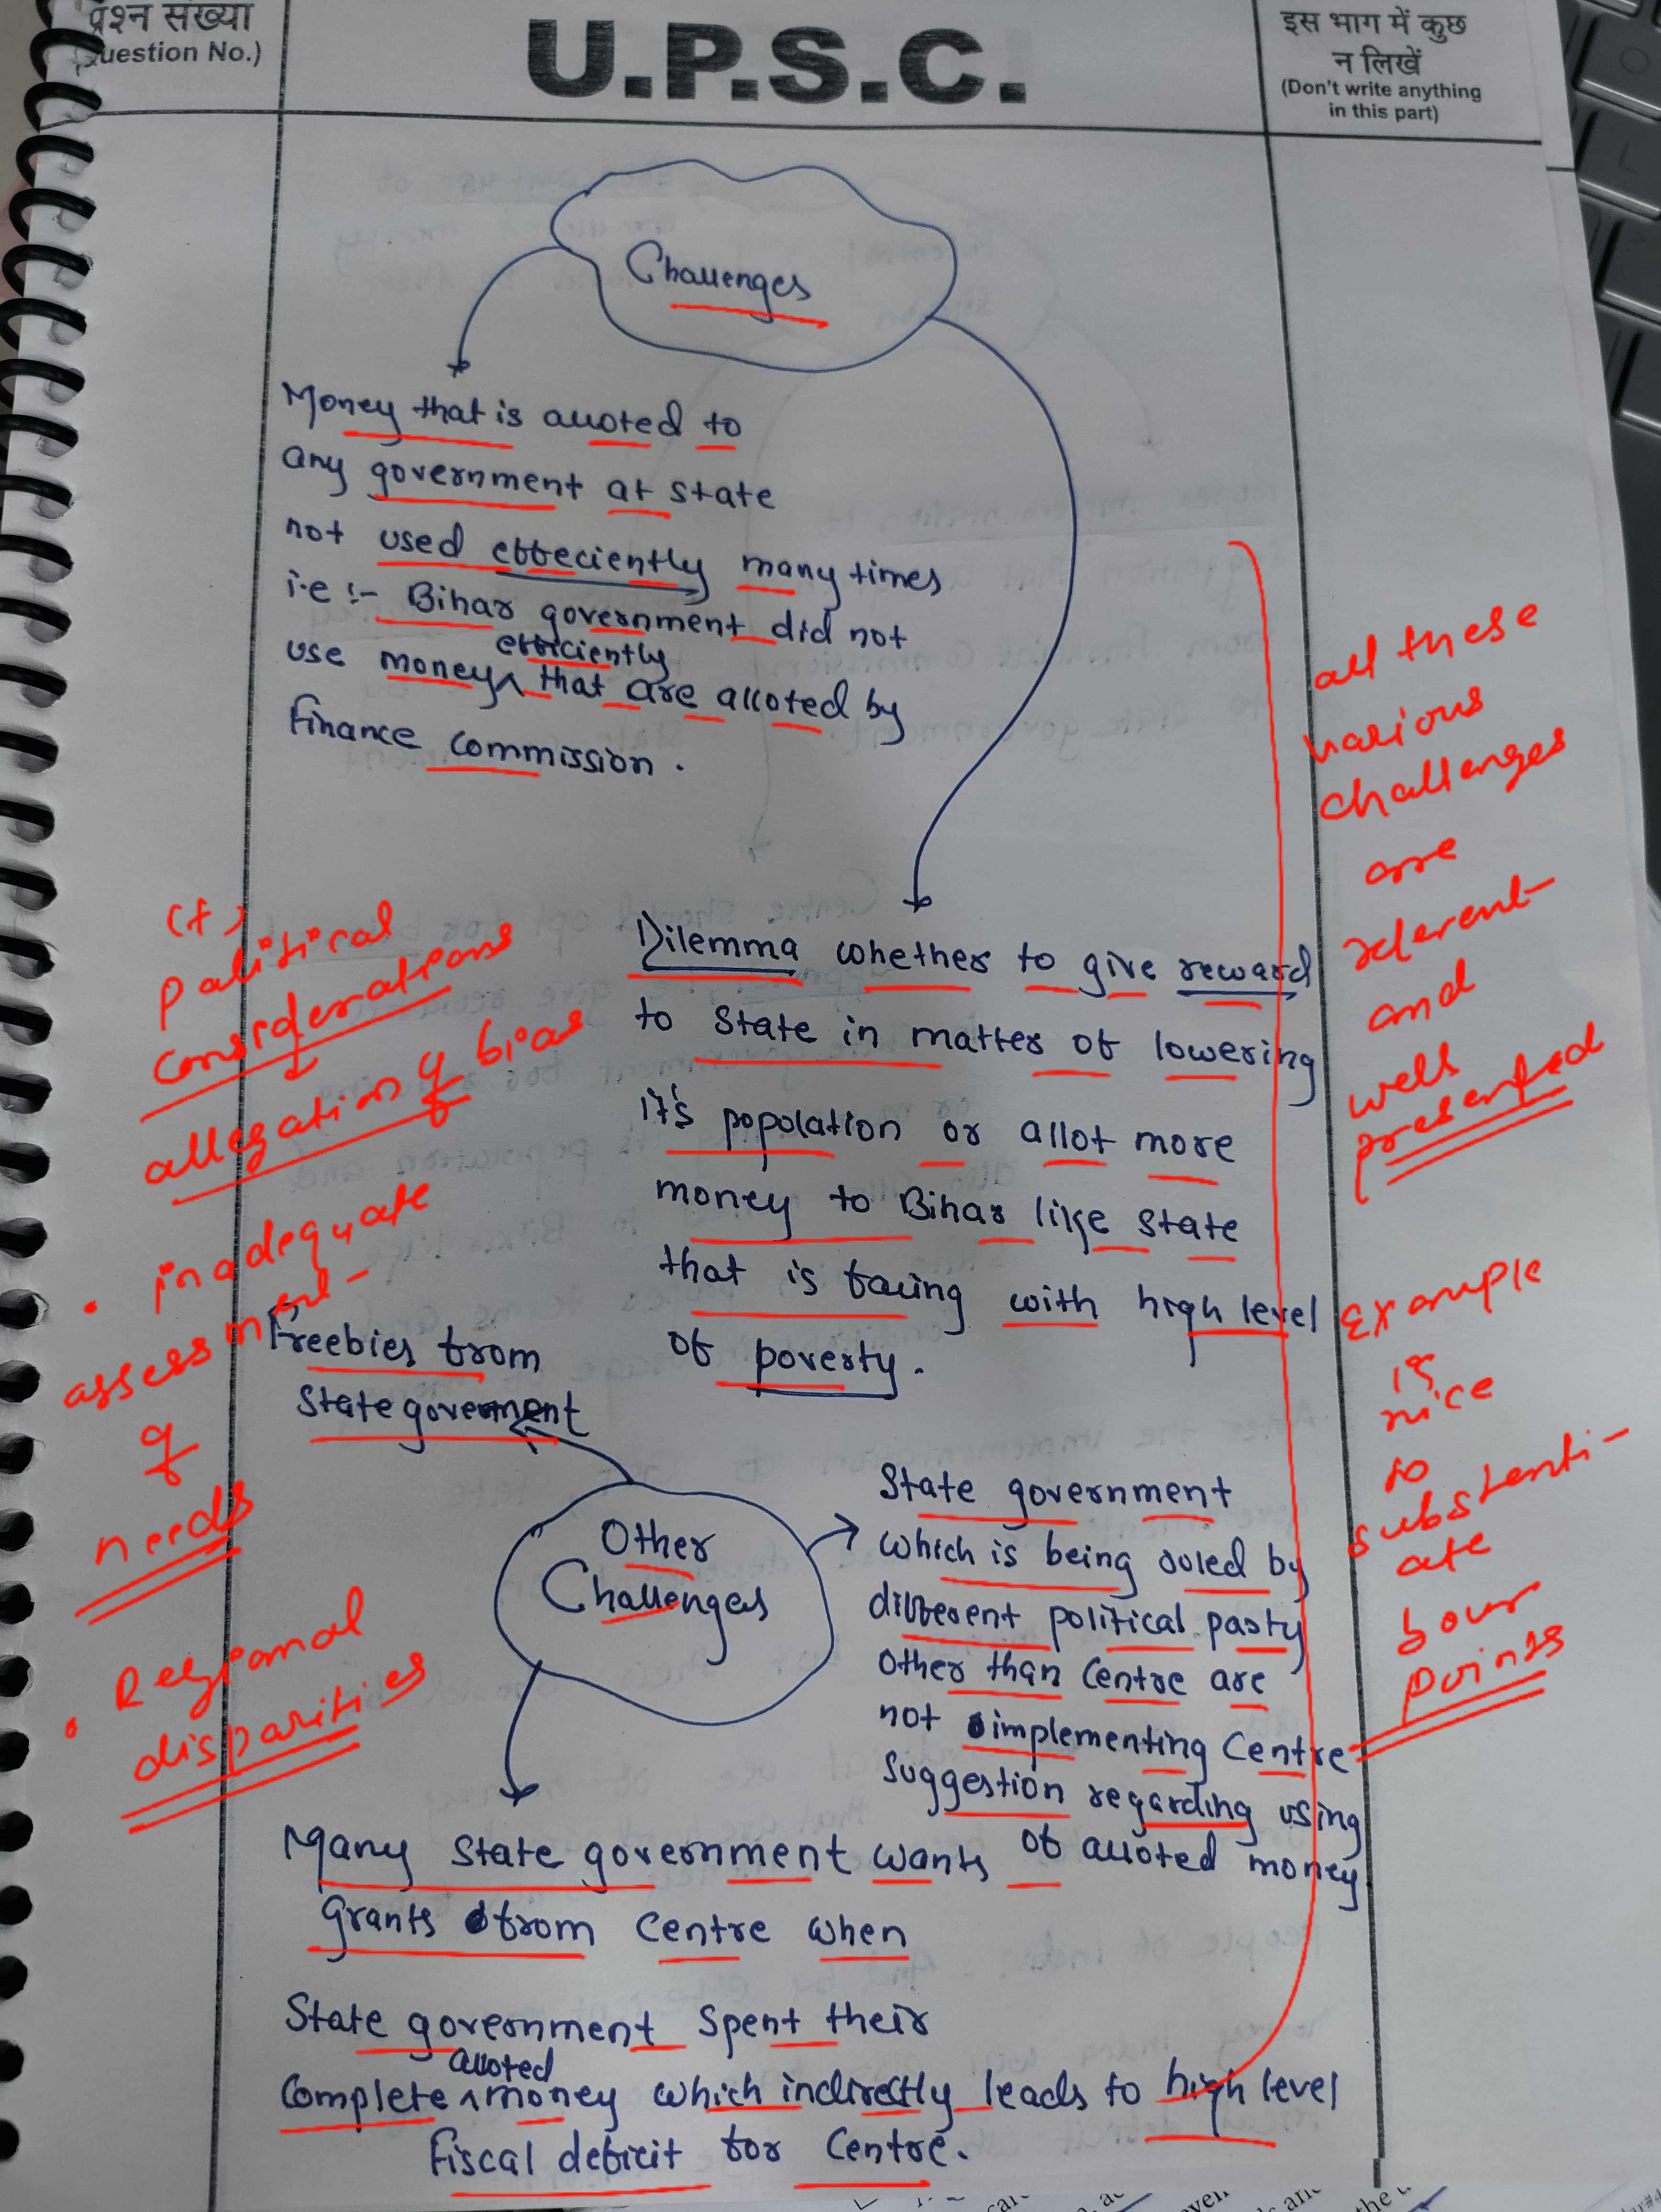 प्रश्न संख्या
(Question No.)
U.P.S.C.
इस भाग में कुछ
न लिखें
(Don't write anything
in this part)
Challenges
Money that is alloted to
any government at state
not used effeciently many times
i.e :- Bihar government did not
use money efficiently that are alloted by
finance commission.
Dilemma whether to give reward
to state in matter of lowering
it's popolation or allot more
money to Bihar like state
that is facing with high level
of poverty.
Freebies from
state government
Other
Challenges
State government
which is being ruled by
different political party
other than Centre are
not implementing Centre
suggestion regarding using
of alloted money
Many state government wants
grants from Centre when
State government spent their
complete alloted money which indirectly leads to high level
fiscal deficit for Centre.
(+)
political
considerations
allegation of bias
• inadequate
assessment
of
needs
• Regional
disparities
all these
various
challenges
are
relevent
and
well
presented
Example
is
nice
to
substenti-
ate
your
points